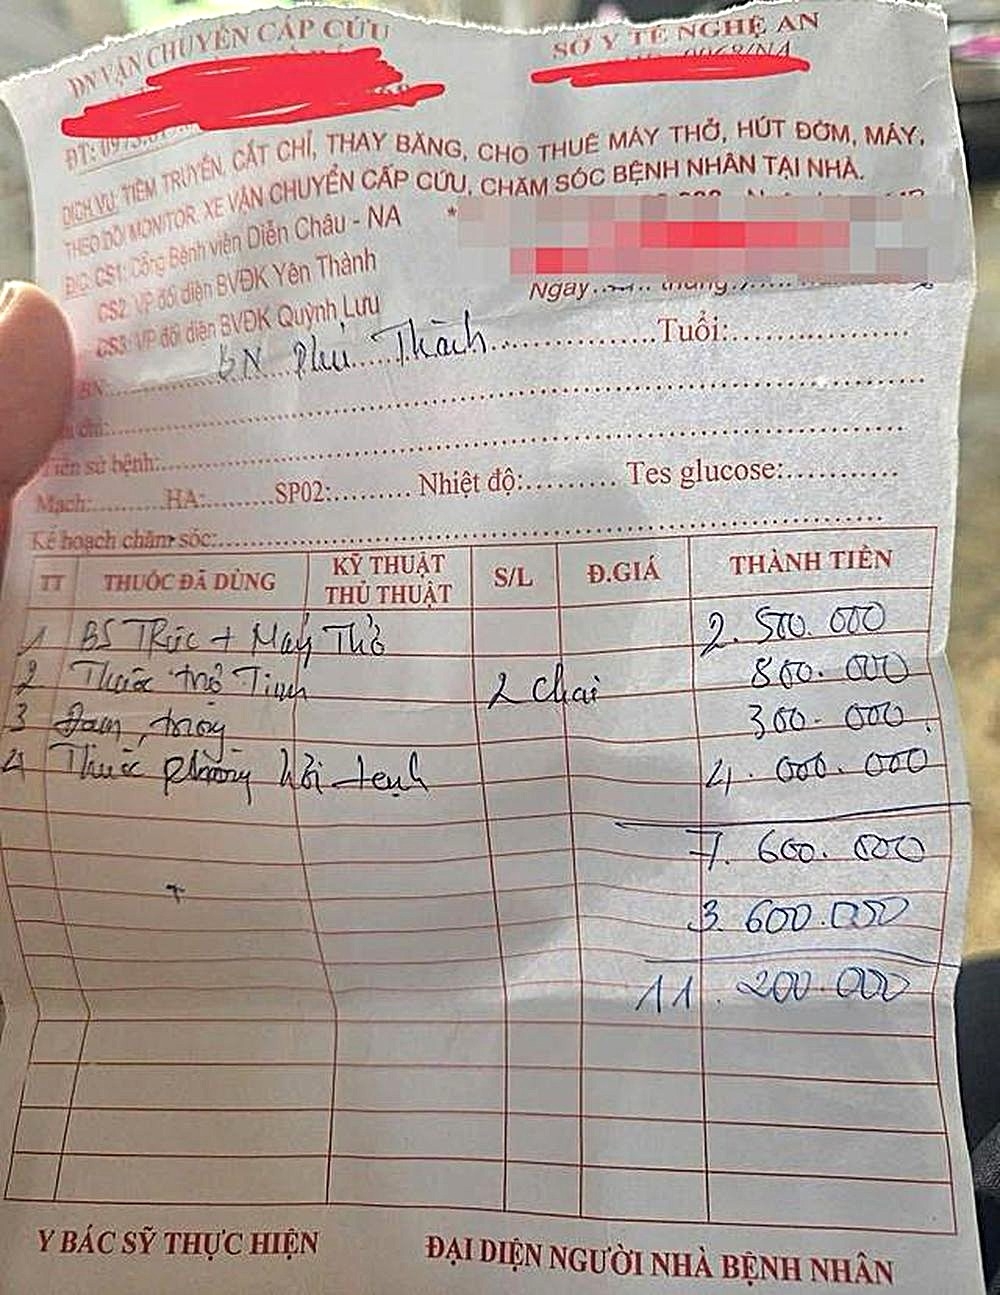 DN VẬN CHUYỂN CẤP CỨU
SỞ Y TẾ NGHỆ AN
0068/NA
ĐT: 0973.
DỊCH VỤ: TIÊM TRUYỀN, CẮT CHỈ, THAY BĂNG, CHO THUÊ MÁY THỞ, HÚT ĐỜM, MÁY,
THEO DÕI MONITOR. XE VẬN CHUYỂN CẤP CỨU, CHĂM SÓC BỆNH NHÂN TẠI NHÀ.
Đ/C: CS1: Cổng Bệnh viện Diễn Châu - NA *
CS2: VP đối diện BVĐK Yên Thành
CS3: VP đối diện BVĐK Quỳnh Lưu
Ngày...... tháng.......
BN:........BN Phú Thành...................Tuổi:....................
chỉ:..............................
Tiền sử bệnh:..............................
Mạch:..........HA:.........SP02:.......... Nhiệt độ:.......... Tes glucose:............
Kế hoạch chăm sóc:..............................
TT THUỐC ĐÃ DÙNG KỸ THUẬT THỦ THUẬT S/L Đ.GIÁ THÀNH TIỀN
1 BS Trực + Máy Thở 2.500.000
2 Thuốc trợ Tim 2 chai 800.000
3 300.000
4 Thuốc phòng hồi tỉnh 4.000.000
7.600.000
3.600.000
11.200.000
Y BÁC SỸ THỰC HIỆN
ĐẠI DIỆN NGƯỜI NHÀ BỆNH NHÂN